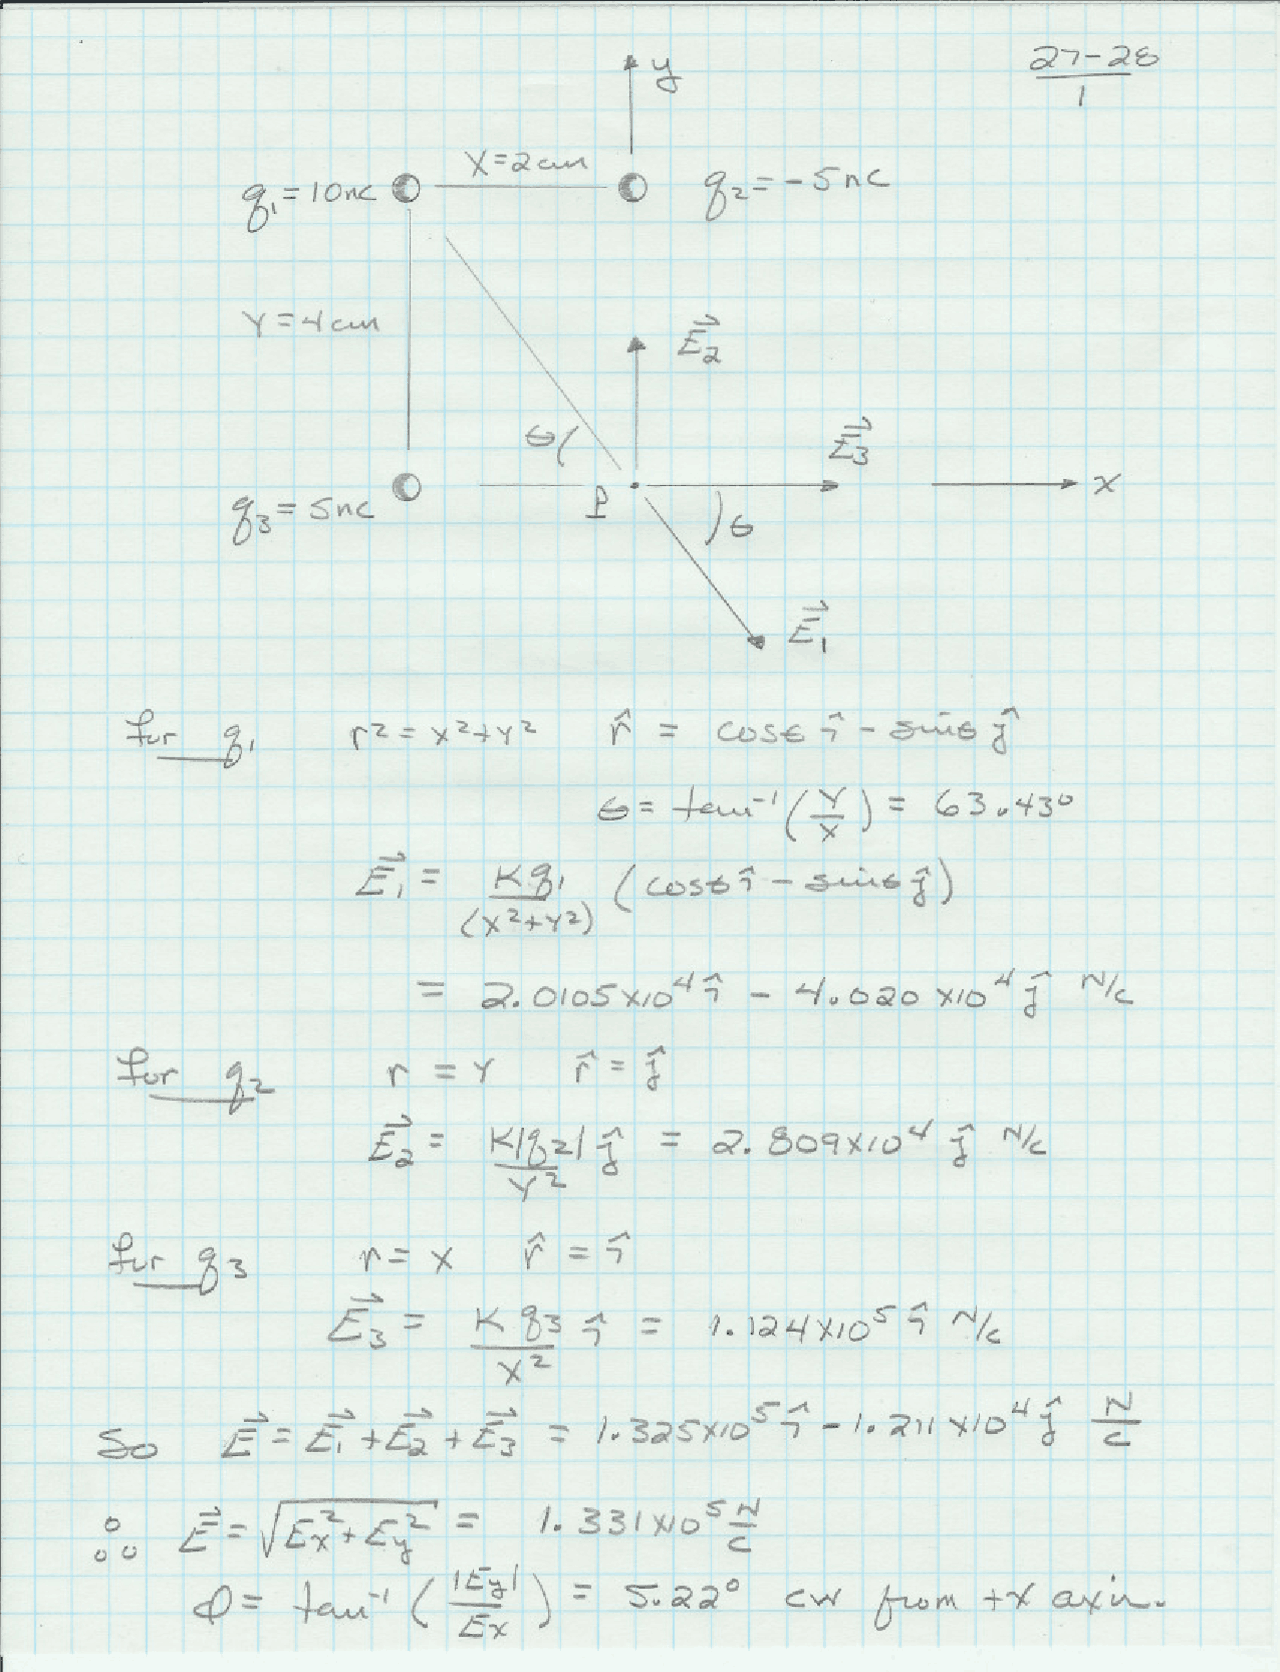 27-28
1
y
X=2cm
q₁=10nC
q₂=-5nC
Y=4cm
E⃗₂
θ
E⃗₃
x
P
q₃=5nC
θ
E⃗₁
for q₁ r²=x²+y² r̂ = cosθ î - sinθ ĵ
θ = tan⁻¹(Y/X) = 63.43°
E⃗₁ = Kq₁/(x²+y²) (cosθ î - sinθ ĵ)
= 2.0105x10⁴ î - 4.020 x10⁴ ĵ N/C
for q₂ r = Y r̂ = ĵ
E⃗₂ = K|q₂|/Y² ĵ = 2.809x10⁴ ĵ N/C
for q₃ r = x r̂ = î
E⃗₃ = Kq₃/X² î = 1.124x10⁵ î N/C
So E⃗ = E⃗₁ + E⃗₂ + E⃗₃ = 1.325x10⁵ î - 1.211x10⁴ ĵ N/C
∴ E⃗ = √(Ex² + Ey²) = 1.331x10⁵ N/C
Φ = tan⁻¹(|Ey|/Ex) = 5.22° cw from +x axis.